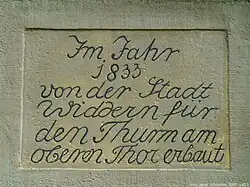 Im Jahr
1833
von der Stadt
Widdern für
den Thurm am
oberen Thor erbaut